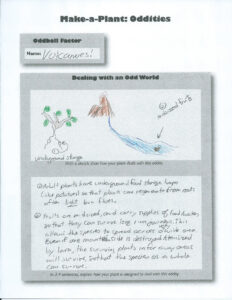 Make-a-Plant: Oddities
Oddball Factor
Name: Vulcanues!
Dealing with an Odd World
② mid-sized fruits
① underground storage
With a sketch show how your plant deals with this oddity.
① Adult plants have underground food storage
like potatoes so that plants can regenerate from roots
often lava flows.
② Fruits are mid-sized, and carry supplies of food
so that they can survive long This
allows the species to spread across a whole area.
Even if one mountain side is destroyed
by lava, the surviving plants in far away areas
will survive, so that the species as a whole
can survive.
In 3-4 sentences, explain how your plant is designed to deal with this oddity.